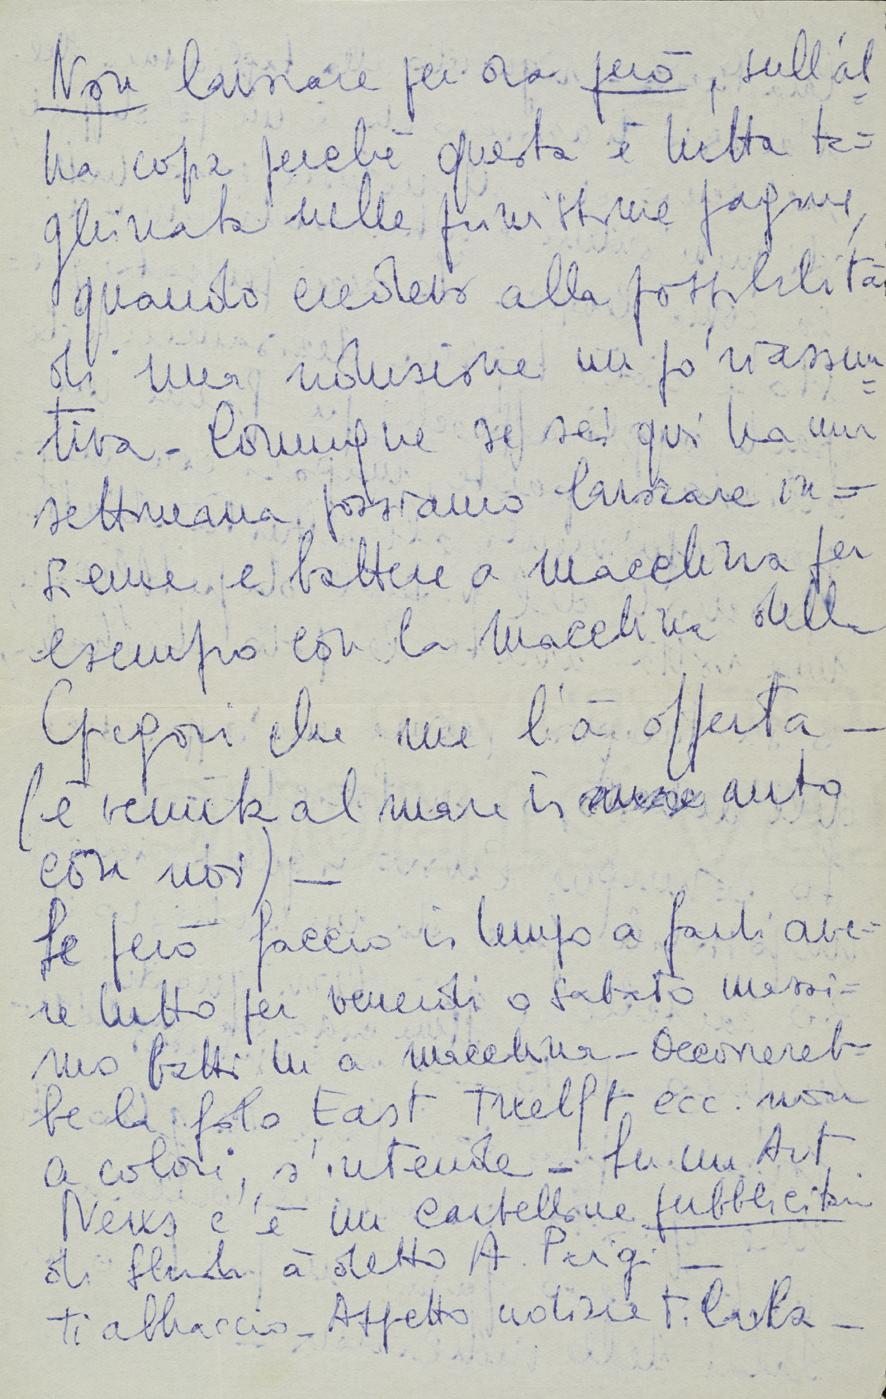 Non lavorare per ora però, sull'al=
tra copia perchè questa è tutta ta=
gliuata nelle primissime pagine,
quando credevo alla possibilità
di una riduzione un po' riassun=
tiva - Comunque se sei qui tra una
settimana possiamo lavorare in=
sieme e battere a macchina per
esempio con la macchina della
Gregori che me l'à offerta -
(è venuta al mare in auto
con noi) -
Se però faccio in tempo a farti ave=
re tutto per venerdi o sabato massi=
mo batti tu a macchina - Occorrereb=
be la foto East Twelft ecc. non
a colori, s'intende - Su un Art
News c'è un cartellone pubblicitario
di à detto A. Perig -
ti abbraccio - Aspetto notizie T.